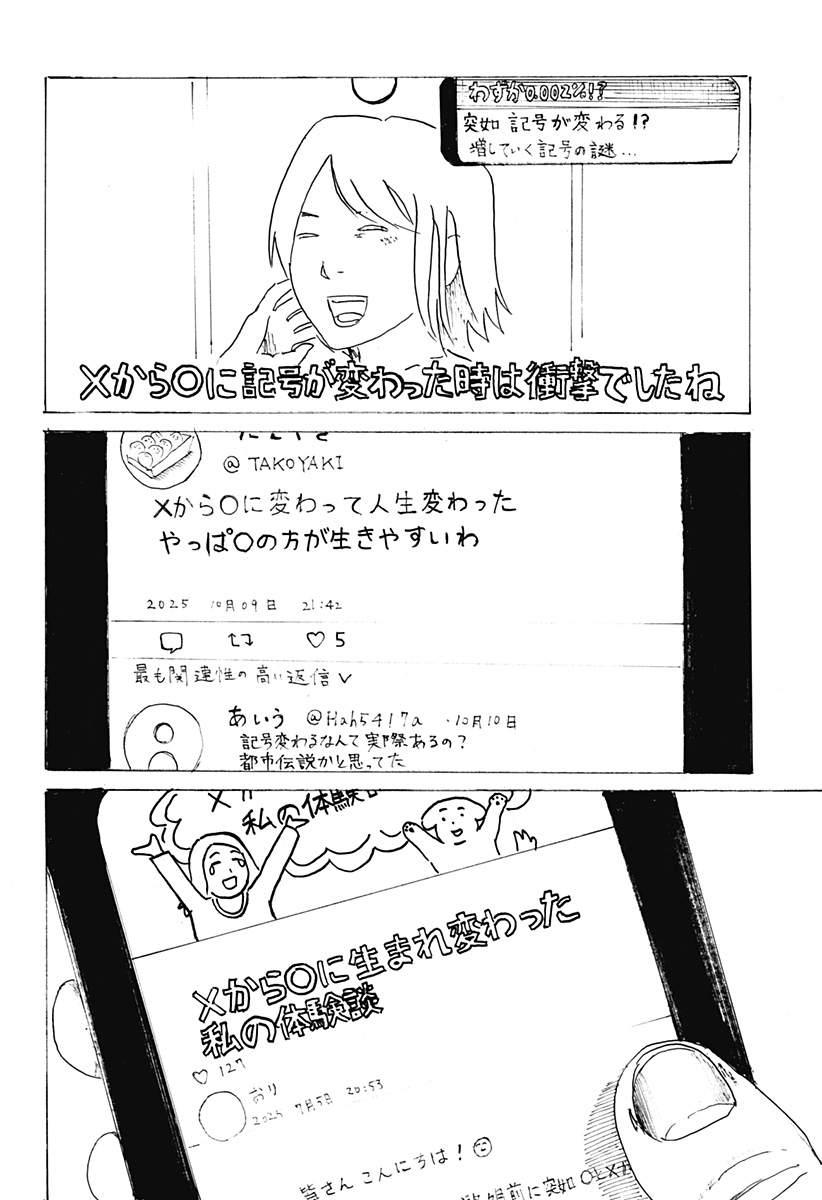 わずか0.002%!?
突如 記号が変わる!?
増していく記号の謎…
×から○に記号が変わった時は衝撃でしたね
@TAKOYAKI
×から○に変わって人生変わった
やっぱ○の方が生きやすいわ
2025 10月09日 21:42
♡5
最も関連性の高い返信∨
あいう @Hah5417a ・10月10日
記号変わるなんて実際あるの?
都市伝説かと思ってた
私の体験
×から○に生まれ変わった
私の体験談
♡ 127
2025 7月5日 20:53
皆さんこんにちは!
前に突如○と×